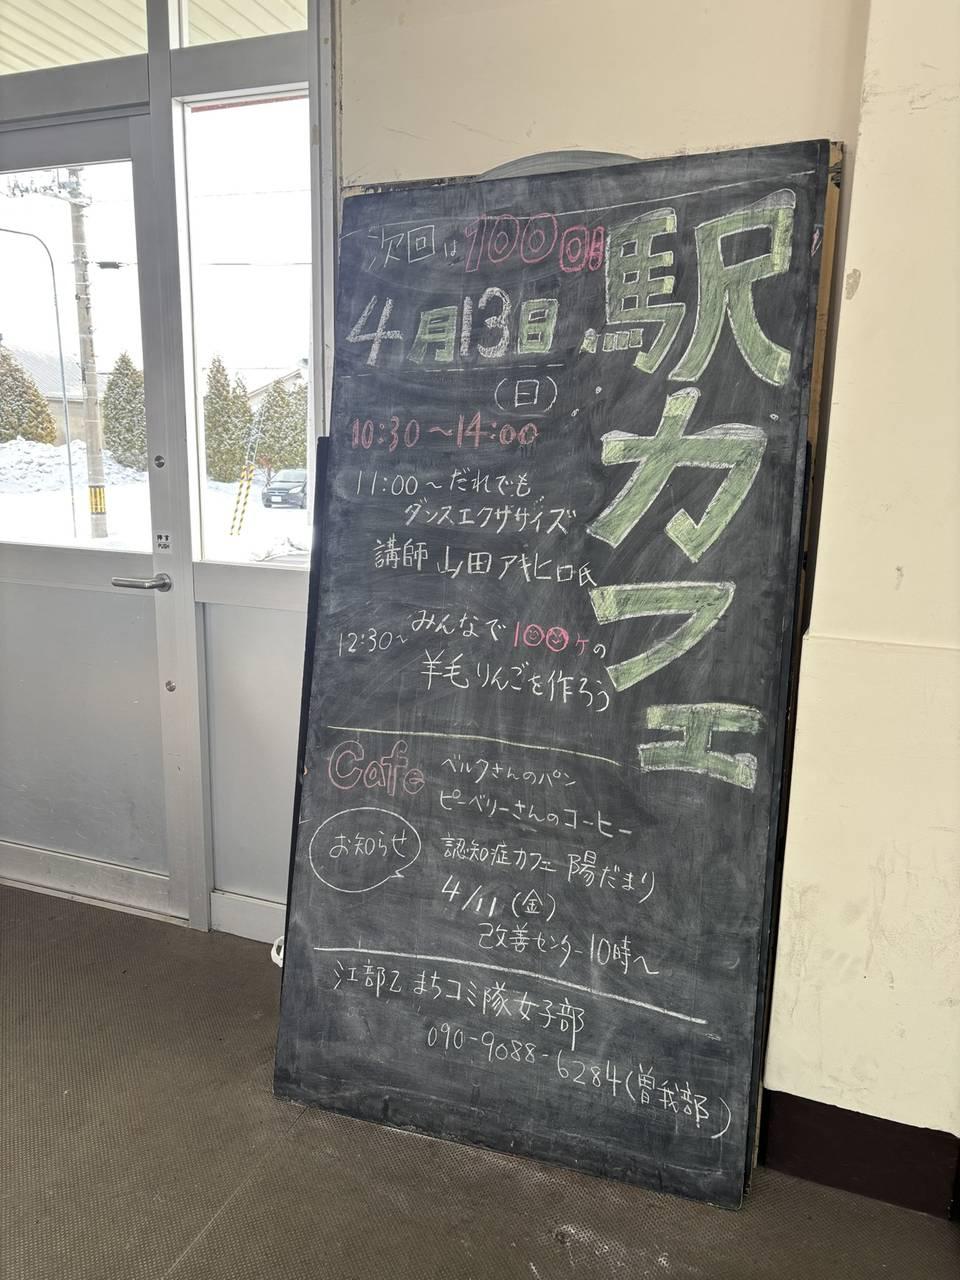 駅カフェ
次回は100回目
4月13日
(日)
10:30～14:00
11:00～だれでも
ダンスエクササイズ
講師 山田アキヒロ氏
12:30～みんなで100ヶの
羊毛りんごを作ろう
Cafe
ベルクさんのパン
ピーベリーさんのコーヒー
お知らせ
認知症カフェ 陽だまり
4/11(金)
改善センター10時～
江部乙まちコミ隊女子部
090-9088-6284(曽我部)
押す
PUSH